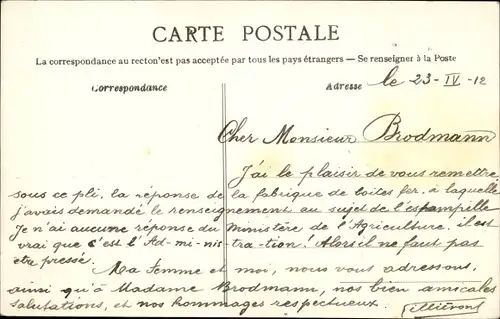 CARTE POSTALE
La correspondance au recto n'est pas acceptée par tous les pays étrangers — Se renseigner à la Poste
Correspondance
Adresse le 23-IV-12
Cher Monsieur Brodmann
J'ai le plaisir de vous remettre
sous ce pli, la réponse de la fabrique de boites fer, à laquelle
j'avais demandé le renseignement au sujet de l'estampille
Je n'ai aucune réponse du Ministère de l'Agriculture, il est
vrai que c'est l'Ad-mi-nis-tra-tion! Alors il ne faut pas
être pressé.
Ma femme et moi, nous vous adressons,
ainsi qu'à Madame Brodmann, nos bien amicales
salutations, et nos hommages respectueux.